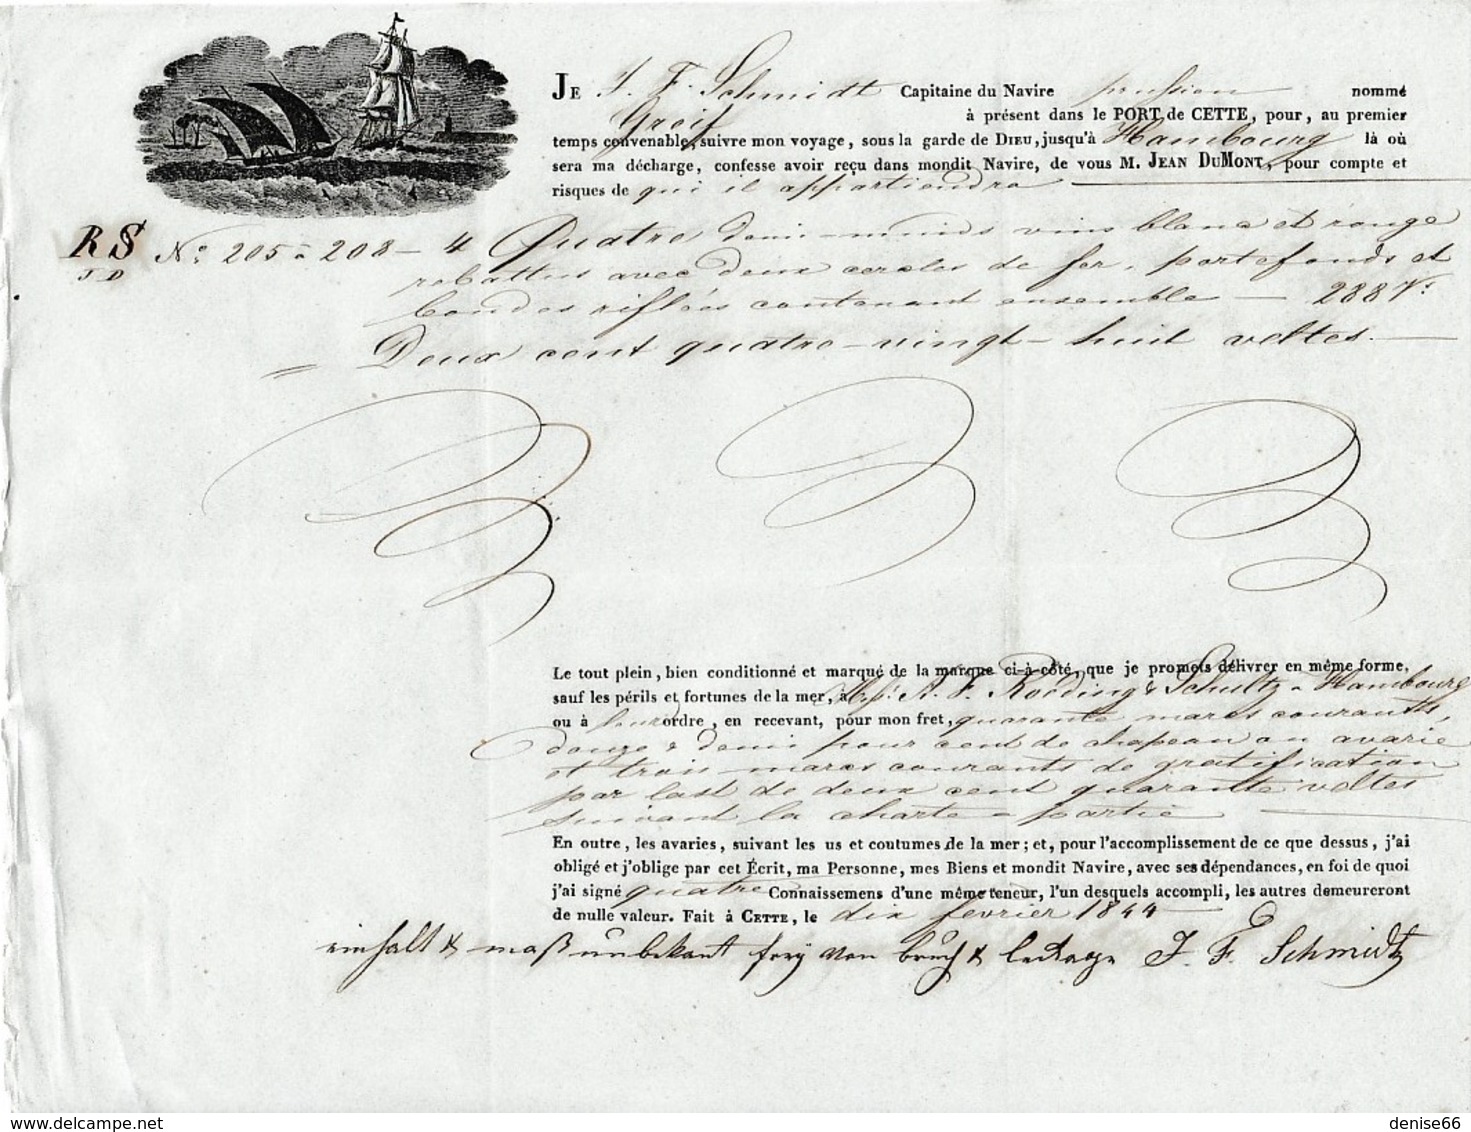 JE J. F. Schmidt Capitaine du Navire prussien nommé
Greif à présent dans le PORT de CETTE, pour, au premier
temps convenable, suivre mon voyage, sous la garde de DIEU, jusqu'à Hambourg là où
sera ma décharge, confesse avoir reçu dans mondit Navire, de vous M. JEAN DUMONT, pour compte et
risques de qui il appartiendra
RS Nos 205 à 208 – 4 Quatre demi-muids vins blanc et rouge
J D
rabattus avec deux cercles de fer, portefonds et
bondes rifflées contenant ensemble — 288 Vs
= Deux cent quatre-vingt-huit veltes.
Le tout plein, bien conditionné et marqué de la marque ci-à-côté, que je promets délivrer en même forme,
sauf les périls et fortunes de la mer, à MM. A. F. Roeding & Schultz à Hambourg
ou à leur ordre, en recevant, pour mon fret, quarante marcs courants,
douze & demi pour cent de chapeau ou avarie
et trois marcs courants de gratification
par last de deux cent quarante veltes
suivant la charte-partie
En outre, les avaries, suivant les us et coutumes de la mer; et, pour l'accomplissement de ce que dessus, j'ai
obligé et j'oblige par cet Écrit, ma Personne, mes Biens et mondit Navire, avec ses dépendances, en foi de quoi
j'ai signé quatre Connaissemens d'une même teneur, l'un desquels accompli, les autres demeureront
de nulle valeur. Fait à CETTE, le dix février 1844
einhalt & maß unbekant frey von bruch & leckage J. F. Schmidt
denise66